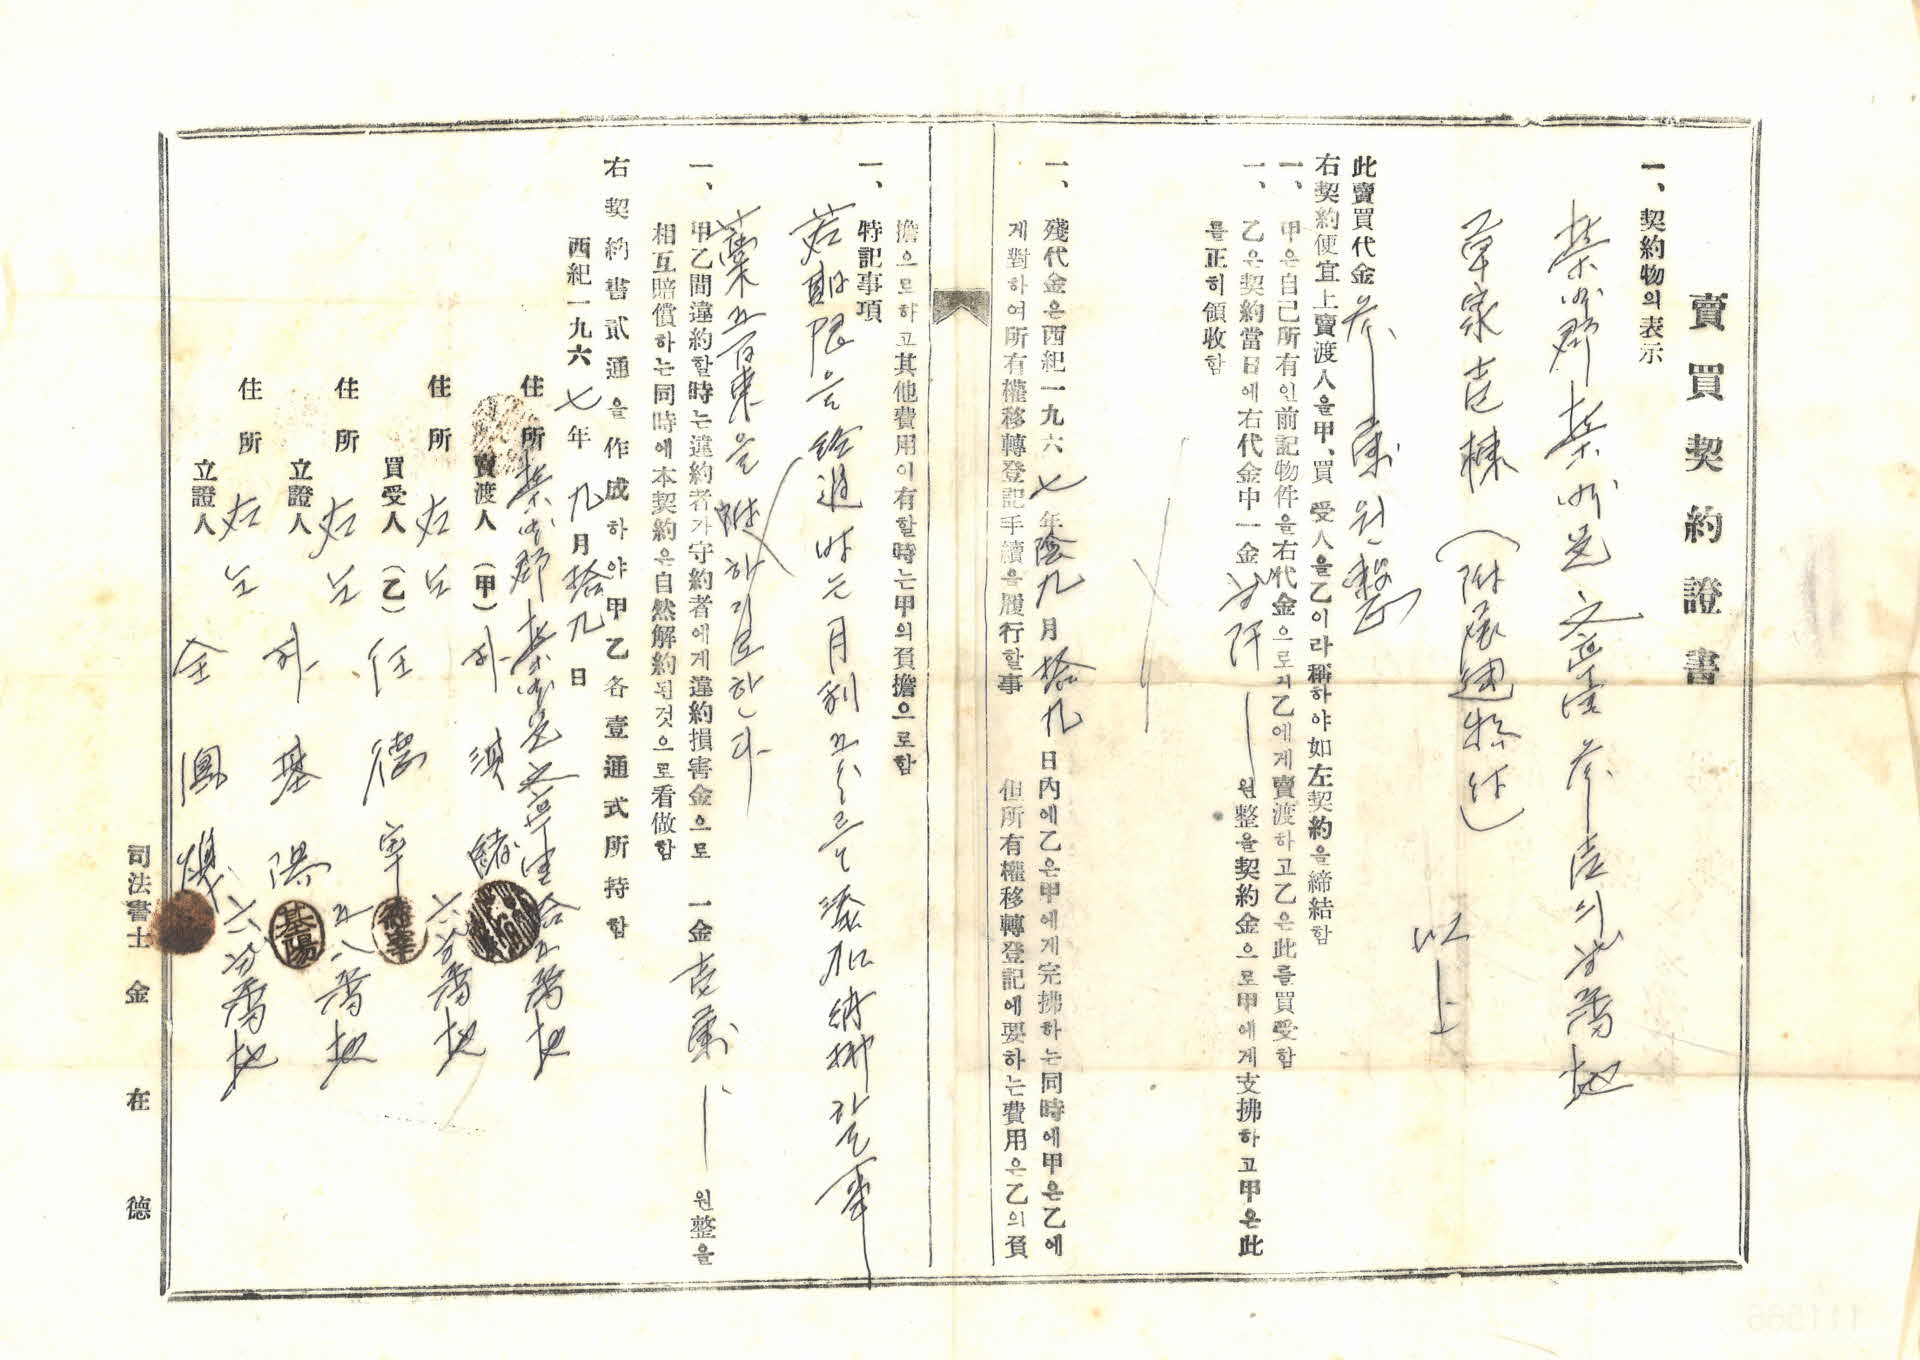 賣買契約證書
一、契約物의表示
榮州郡榮州邑文亭里參壹의 番地
草家壹棟(附屬建物 )
以上
此賣買代金參萬원整
右契約便宜上賣渡人을甲、買受人을乙이라稱하야如左契約을締結함
一、甲은自己所有인前記物件을右代金으로乙에게賣渡하고乙은此를買受함
一、乙은契約當日에右代金中一金 仟 원整을契約金으로甲에게支拂하고甲은此
를正히領收함
一、殘代金은西紀一九六七年陰九月拾九日內에乙은甲에게完拂하는同時에甲은乙에
게對하여所有權移轉登記手續을履行할事 但所有權移轉登記에要하는費用은乙의負
擔으로하고其他費用이有할時는甲의負擔으로함
一、特記事項
若期限을經過時는月利五分를添加 拂할事
藁五百束을 하기로한다
一、甲乙間違約할時는違約者가守約者에게違約損害金으로 一金壹萬 원整을
相互賠償하는同時에本契約은自然解約된것으로看做함
右契約書貳通을作成하야甲乙各壹通式所持함
西紀一九六七年九月拾九日
住所 榮州郡榮州邑文亭里 五番地
賣渡人(甲) 朴
住所 右仝 番地
買受人(乙) 任德宰 德宰
住所 右仝 五八番地
立證人 朴基陽 基陽
住所 右仝 番地
立證人 全鳳煥
司法書士 金在德
111566